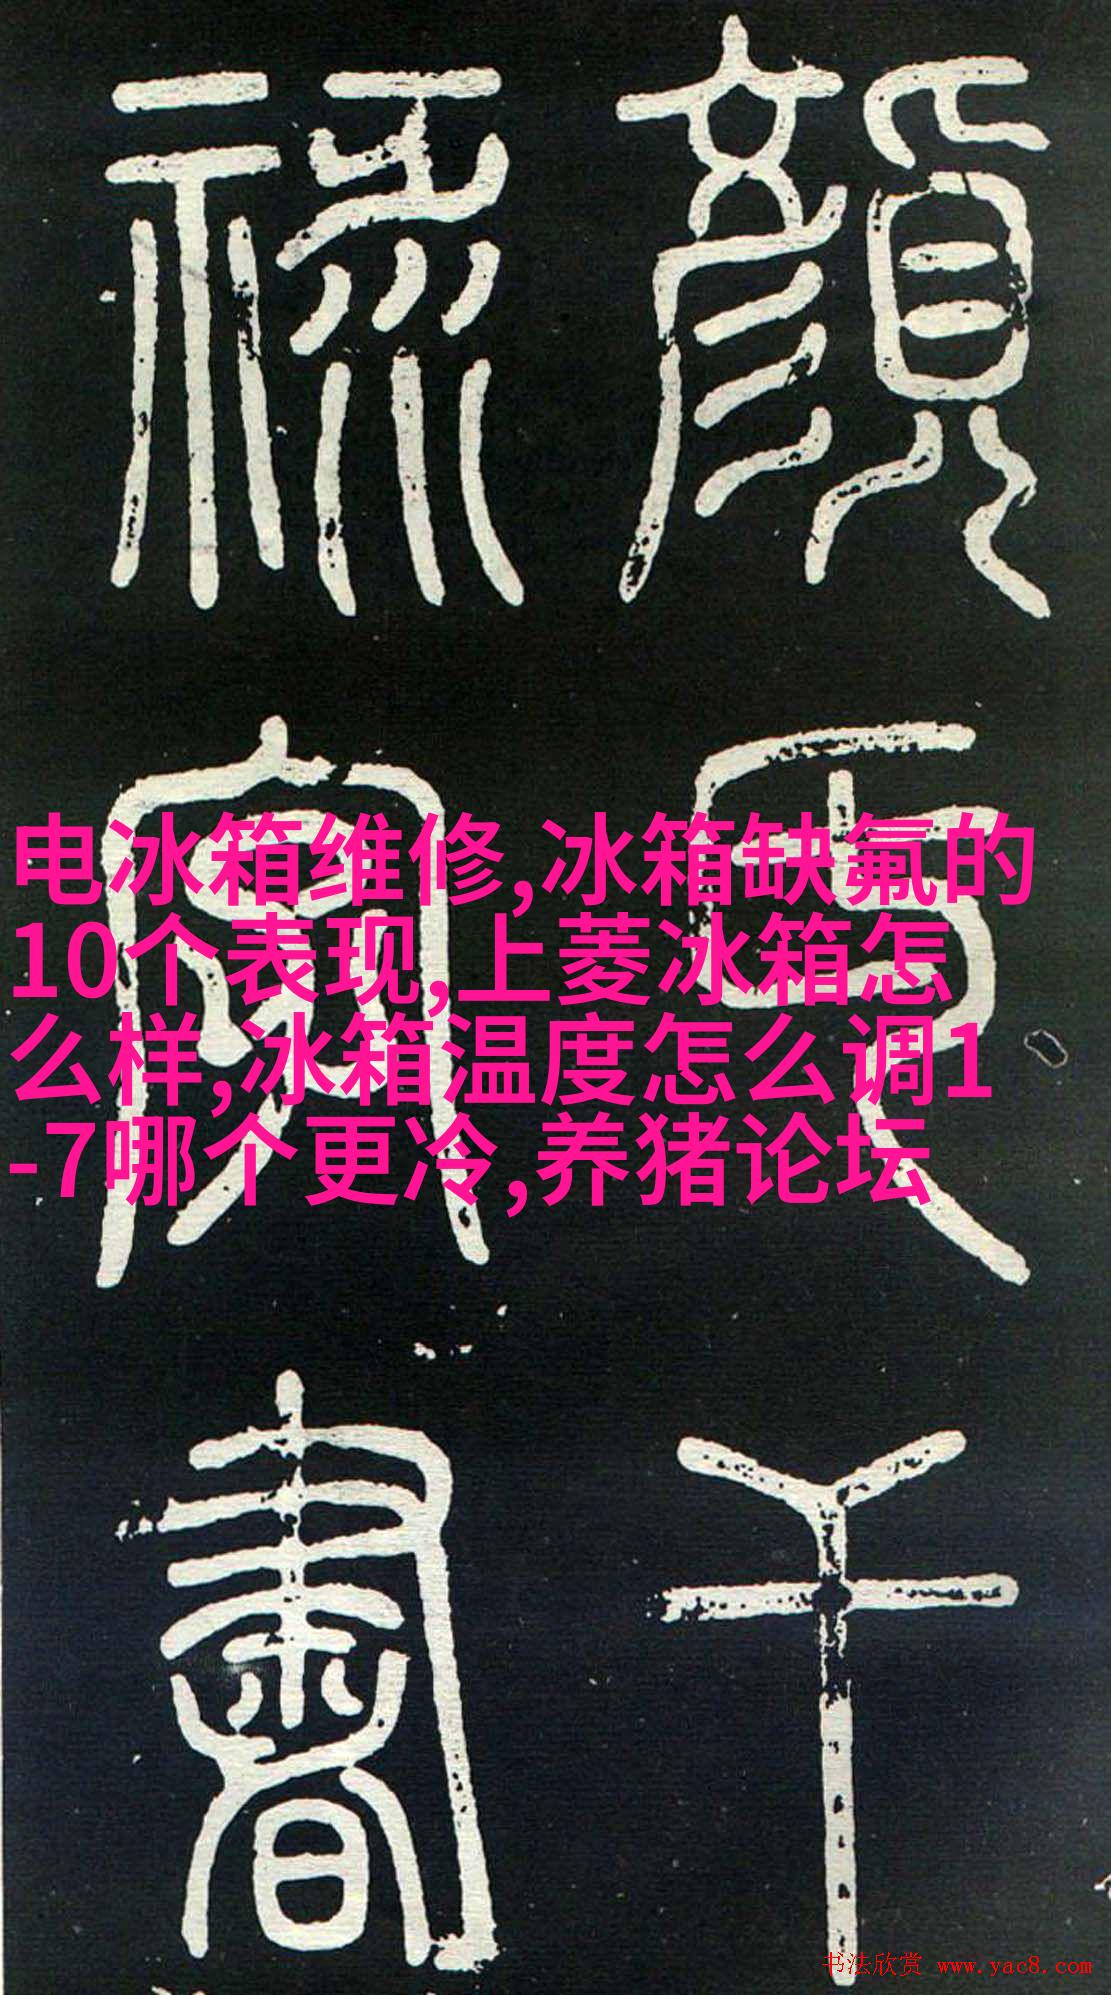 顏
干
祿
字
書
电冰箱维修,冰箱缺氟的
10个表现,上菱冰箱怎
么样,冰箱温度怎么调1
-7哪个更冷,养猪论坛
书法欣赏 www.yac8.com